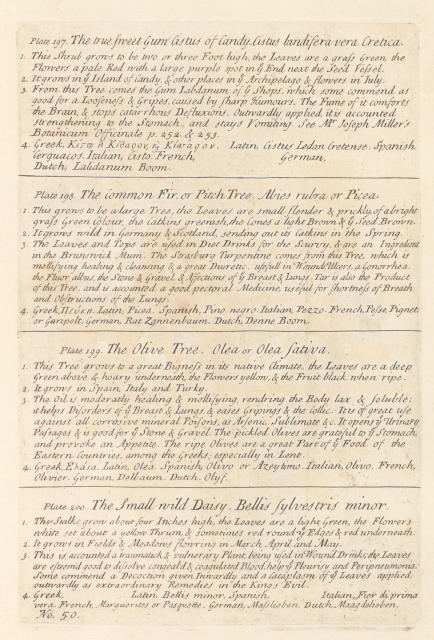 Plate 197. The true sweet Gum Cistus of Candy. Cistus landifera vera Cretica.
1. This Shrub grows to be two or three Foot high, the Leaves are a grass Green, the
Flowers a pale Red with a large purple spot in ye End next the Seed Vessel.
2. It grows in ye Island of Candy, & other places in ye Archipelago & flowers in July.
3. From this Tree comes the Gum Labdanum of ye Shops, which some commend as
good for a Looseness & Gripes, caused by sharp Humours. The Fume of it comforts
the Brain, & stops catarrhous Defluxions. Outwardly applied, it is accounted
strengthening to the Stomach, and stays Vomiting. See Mr. Joseph Miller's
Botanicum Officinale p. 252. & 253.
4. Greek, Latin, Cistus Ledon Cretense. Spanish
Cerguacos. Italian, Cisto. French, German,
Dutch, Laldanum Boom.
Plate 198. The Common Fir, or Pitch Tree. Abies rubra or Picea.
1. This grows to be a large Tree, the Leaves are small slender & prickly, of a bright
grass Green Colour, the Catkins greenish, the Cones a light Brown & ye Seed Brown.
2. It grows wild in Germany & Scotland, sending out its Catkins in the Spring.
3. The Leaves and Tops are used in Diet Drinks for the Scurvy, & are an Ingredient
in the Brunswick Mum. The Strasburg Turpentine comes from this Tree, which is
mollifying healing & cleansing, & a great Diuretic, usefull in Wounds Ulcers, a Gonorrhea,
the Fluor albus, the Stone & Gravel, & Affections of ye Breast & Lungs. Tar is also the Product
of this Tree, and is accounted a good pectoral Medicine, useful for shortness of Breath
and Obstructions of the Lungs.
4. Greek, Πεύκη. Latin, Picea. Spanish, Pino negro. Italian, Pezzo. French, Pesse, Pignet
or Garipolt. German, Rat Zannenbaum. Dutch, Denne Boom.
Plate 199. The Olive Tree. Olea or Olea sativa.
1. This Tree grows to a great Bigness in its native Climate, the Leaves are a deep
Green above & hoary underneath, the Flowers yellow, & the Fruit black when ripe.
2. It grows in Spain, Italy and Turky.
3. The Oil is moderatly healing & mollifying, rendring the Body lax & soluble:
it helps Disorders of ye Breast & Lungs, & eases Gripings & the Collic. It is of great use
against all corrosive mineral Poisons, as Arsenic, Sublimate &c. It opens ye Urinary
Passages & is good for ye Stone & Gravel. The pickled Olives are grateful to ye Stomach,
and provoke an Appetite. The ripe Olives are a great Part of ye Food of the
Eastern Countries, among the Greeks, especially in Lent.
4. Greek, Ἐλαία. Latin, Olea. Spanish, Olivo or Azeytimo. Italian, Olivo. French,
Olivier. German, Delbaum. Dutch, Olyf.
Plate 200. The Small wild Daisy. Bellis sylvestris minor.
1. The Stalks grow about four Inches high, the Leaves are a light Green, the Flowers
white set about a yellow Thrum, & sometimes red round ye Edges & red underneath.
2. It grows in Fields & Meadows flowring in March, April and May.
3. This is accounted a traumatick & vulnerary Plant, being used in Wound Drinks; the Leaves
are esteem'd good to dissolve congeal'd & coagulated Blood, help ye Pleurisy and Peripneumonia.
Some commend a Decoction given Inwardly and a Cataplasm of ye Leaves applied
outwardly as extraordinary Remedies in the Kings Evil.
4. Greek, Latin, Bellis minor. Spanish, Italian, Fior di prima
vera. French, Marguerites or Pasquette. German, Masslieben. Dutch, Maagdelieben.
No. 50.